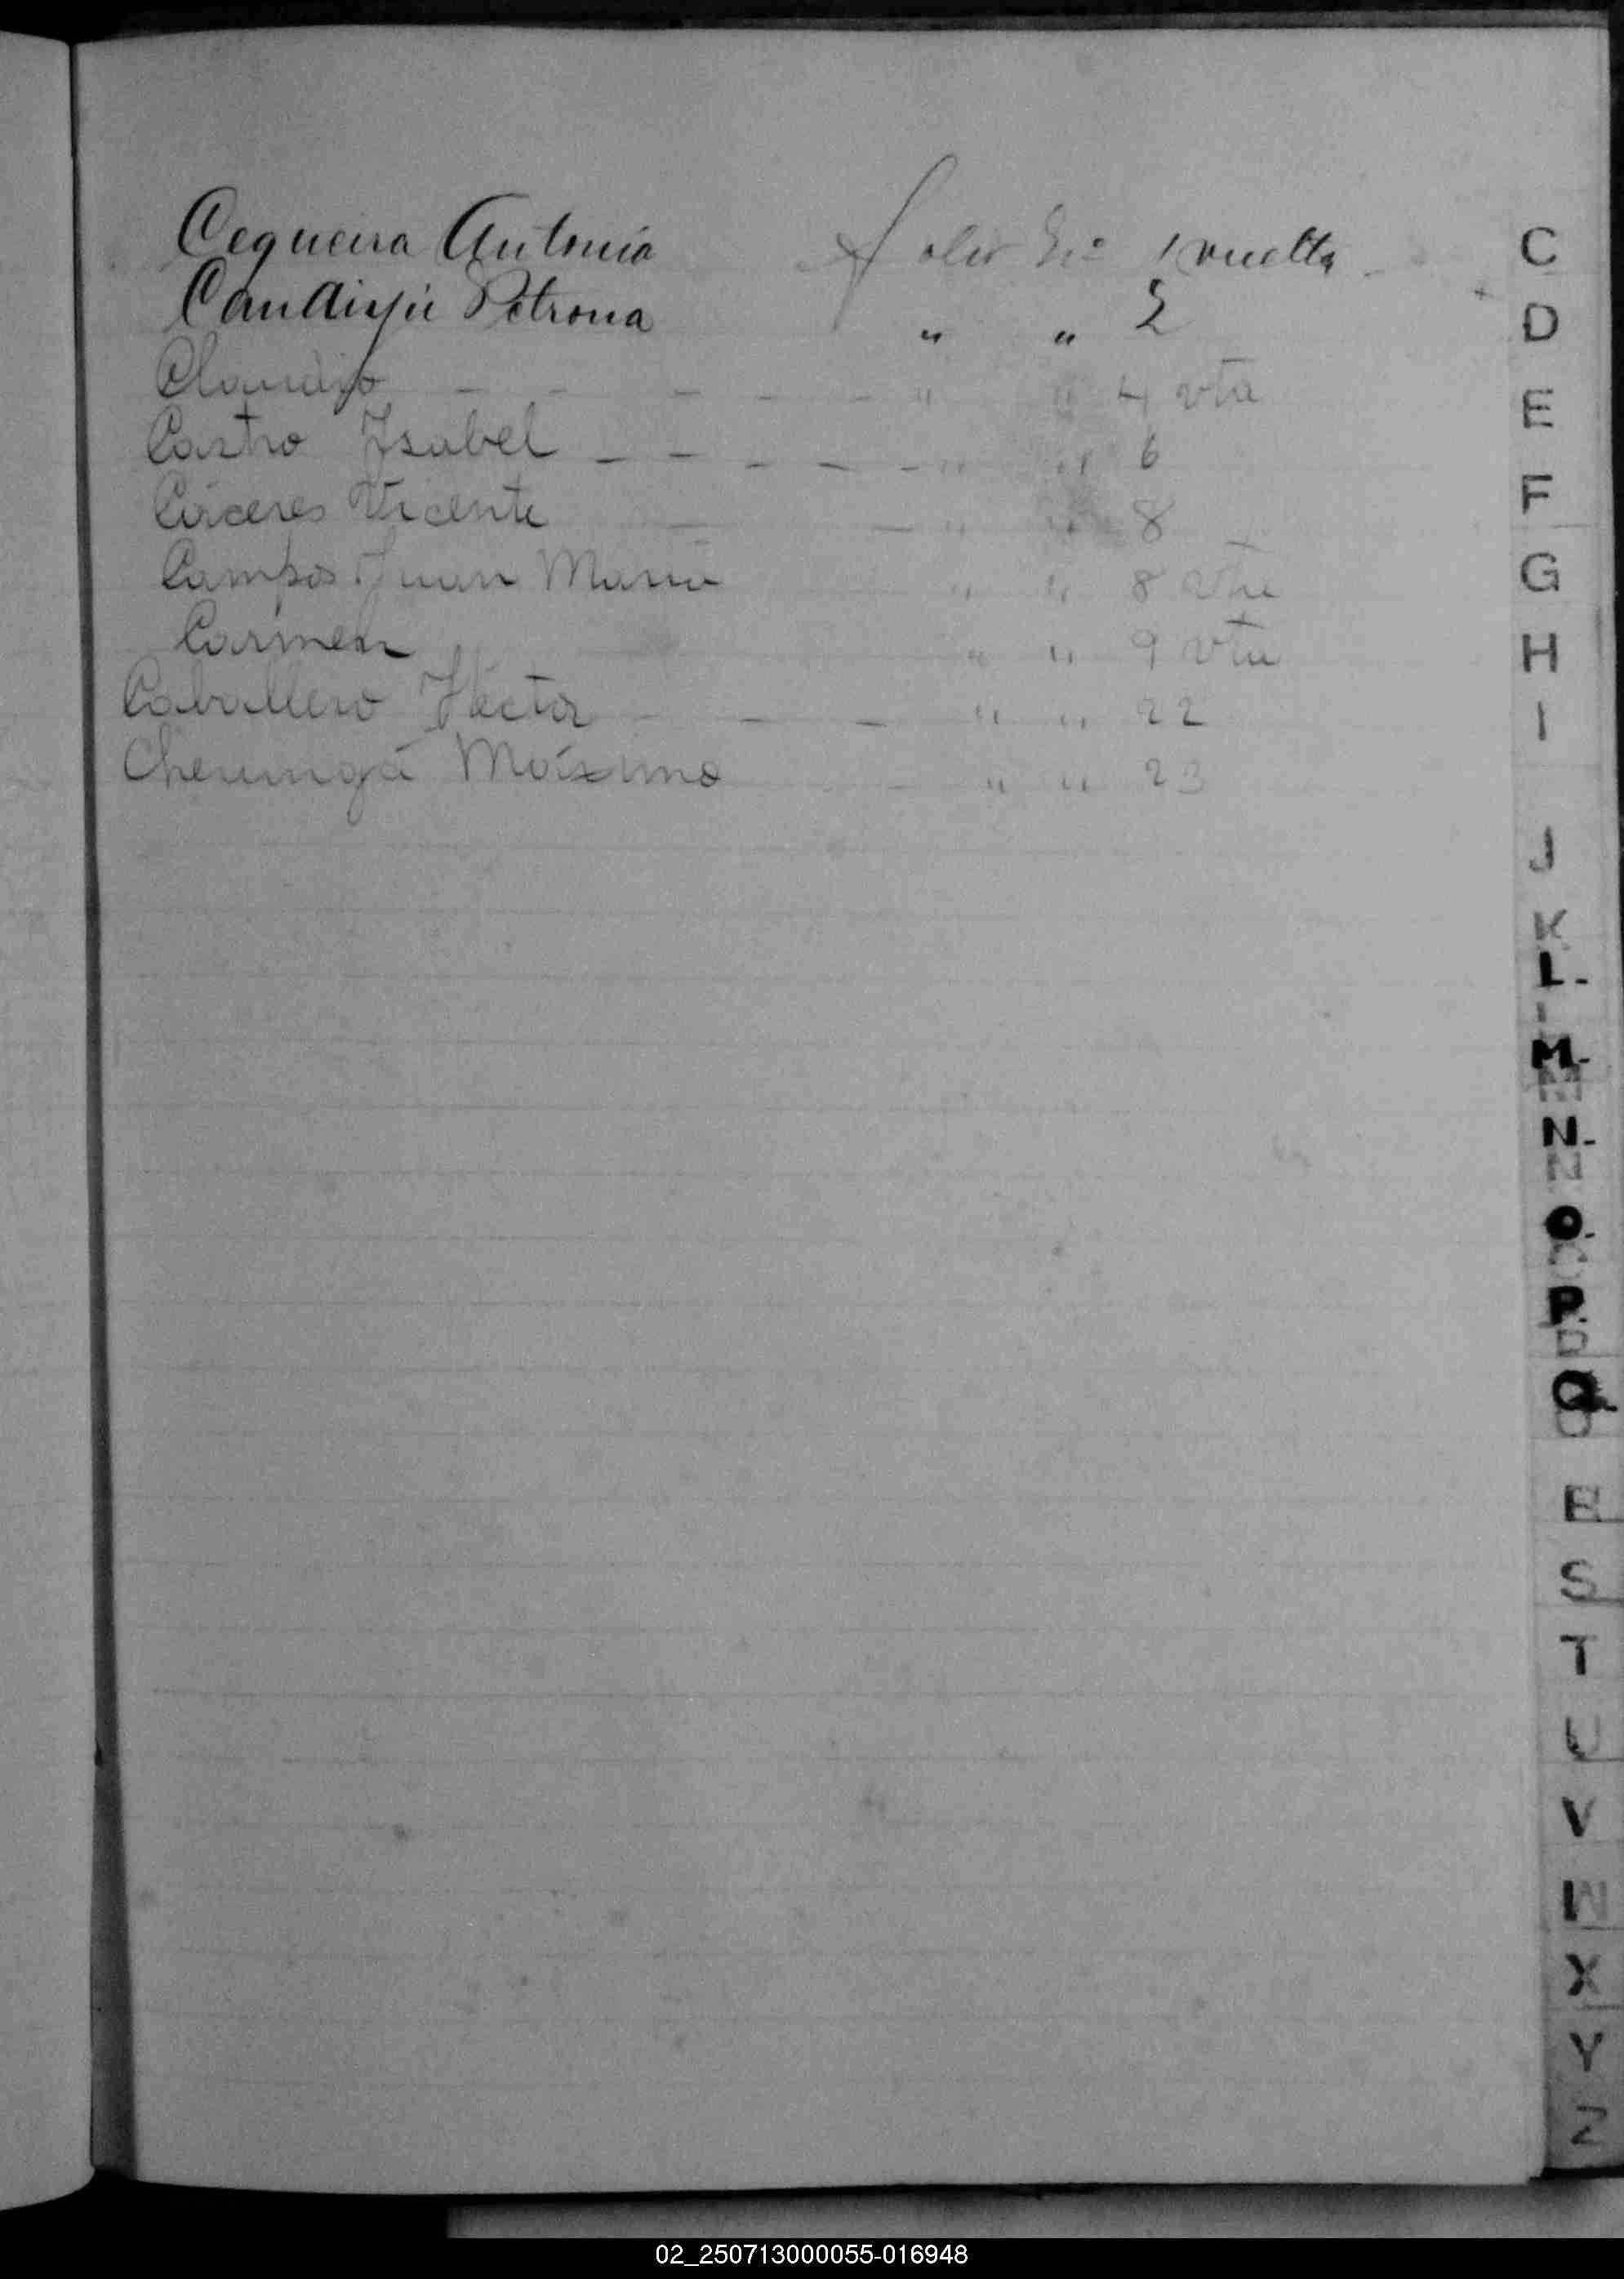 Cequeira Antonia folio No 1 vuelta
Candirjú Petrona " " 2
Claudio - - - - - - " " 4 vta
Castro Isabel - - - - - " " 6
Cáceres Vicente - - " " 8
Campos Juan Maria " " 8 vta
Carmen " " 9 vta
Caballero Héctor - - - " " 22
Máximo " " 23
C
D
E
F
G
H
I
J
K
L.
M.
N.
O.
P.
Q.
R
S
T
U
V
W
X
Y
Z
02_250713000055-016948